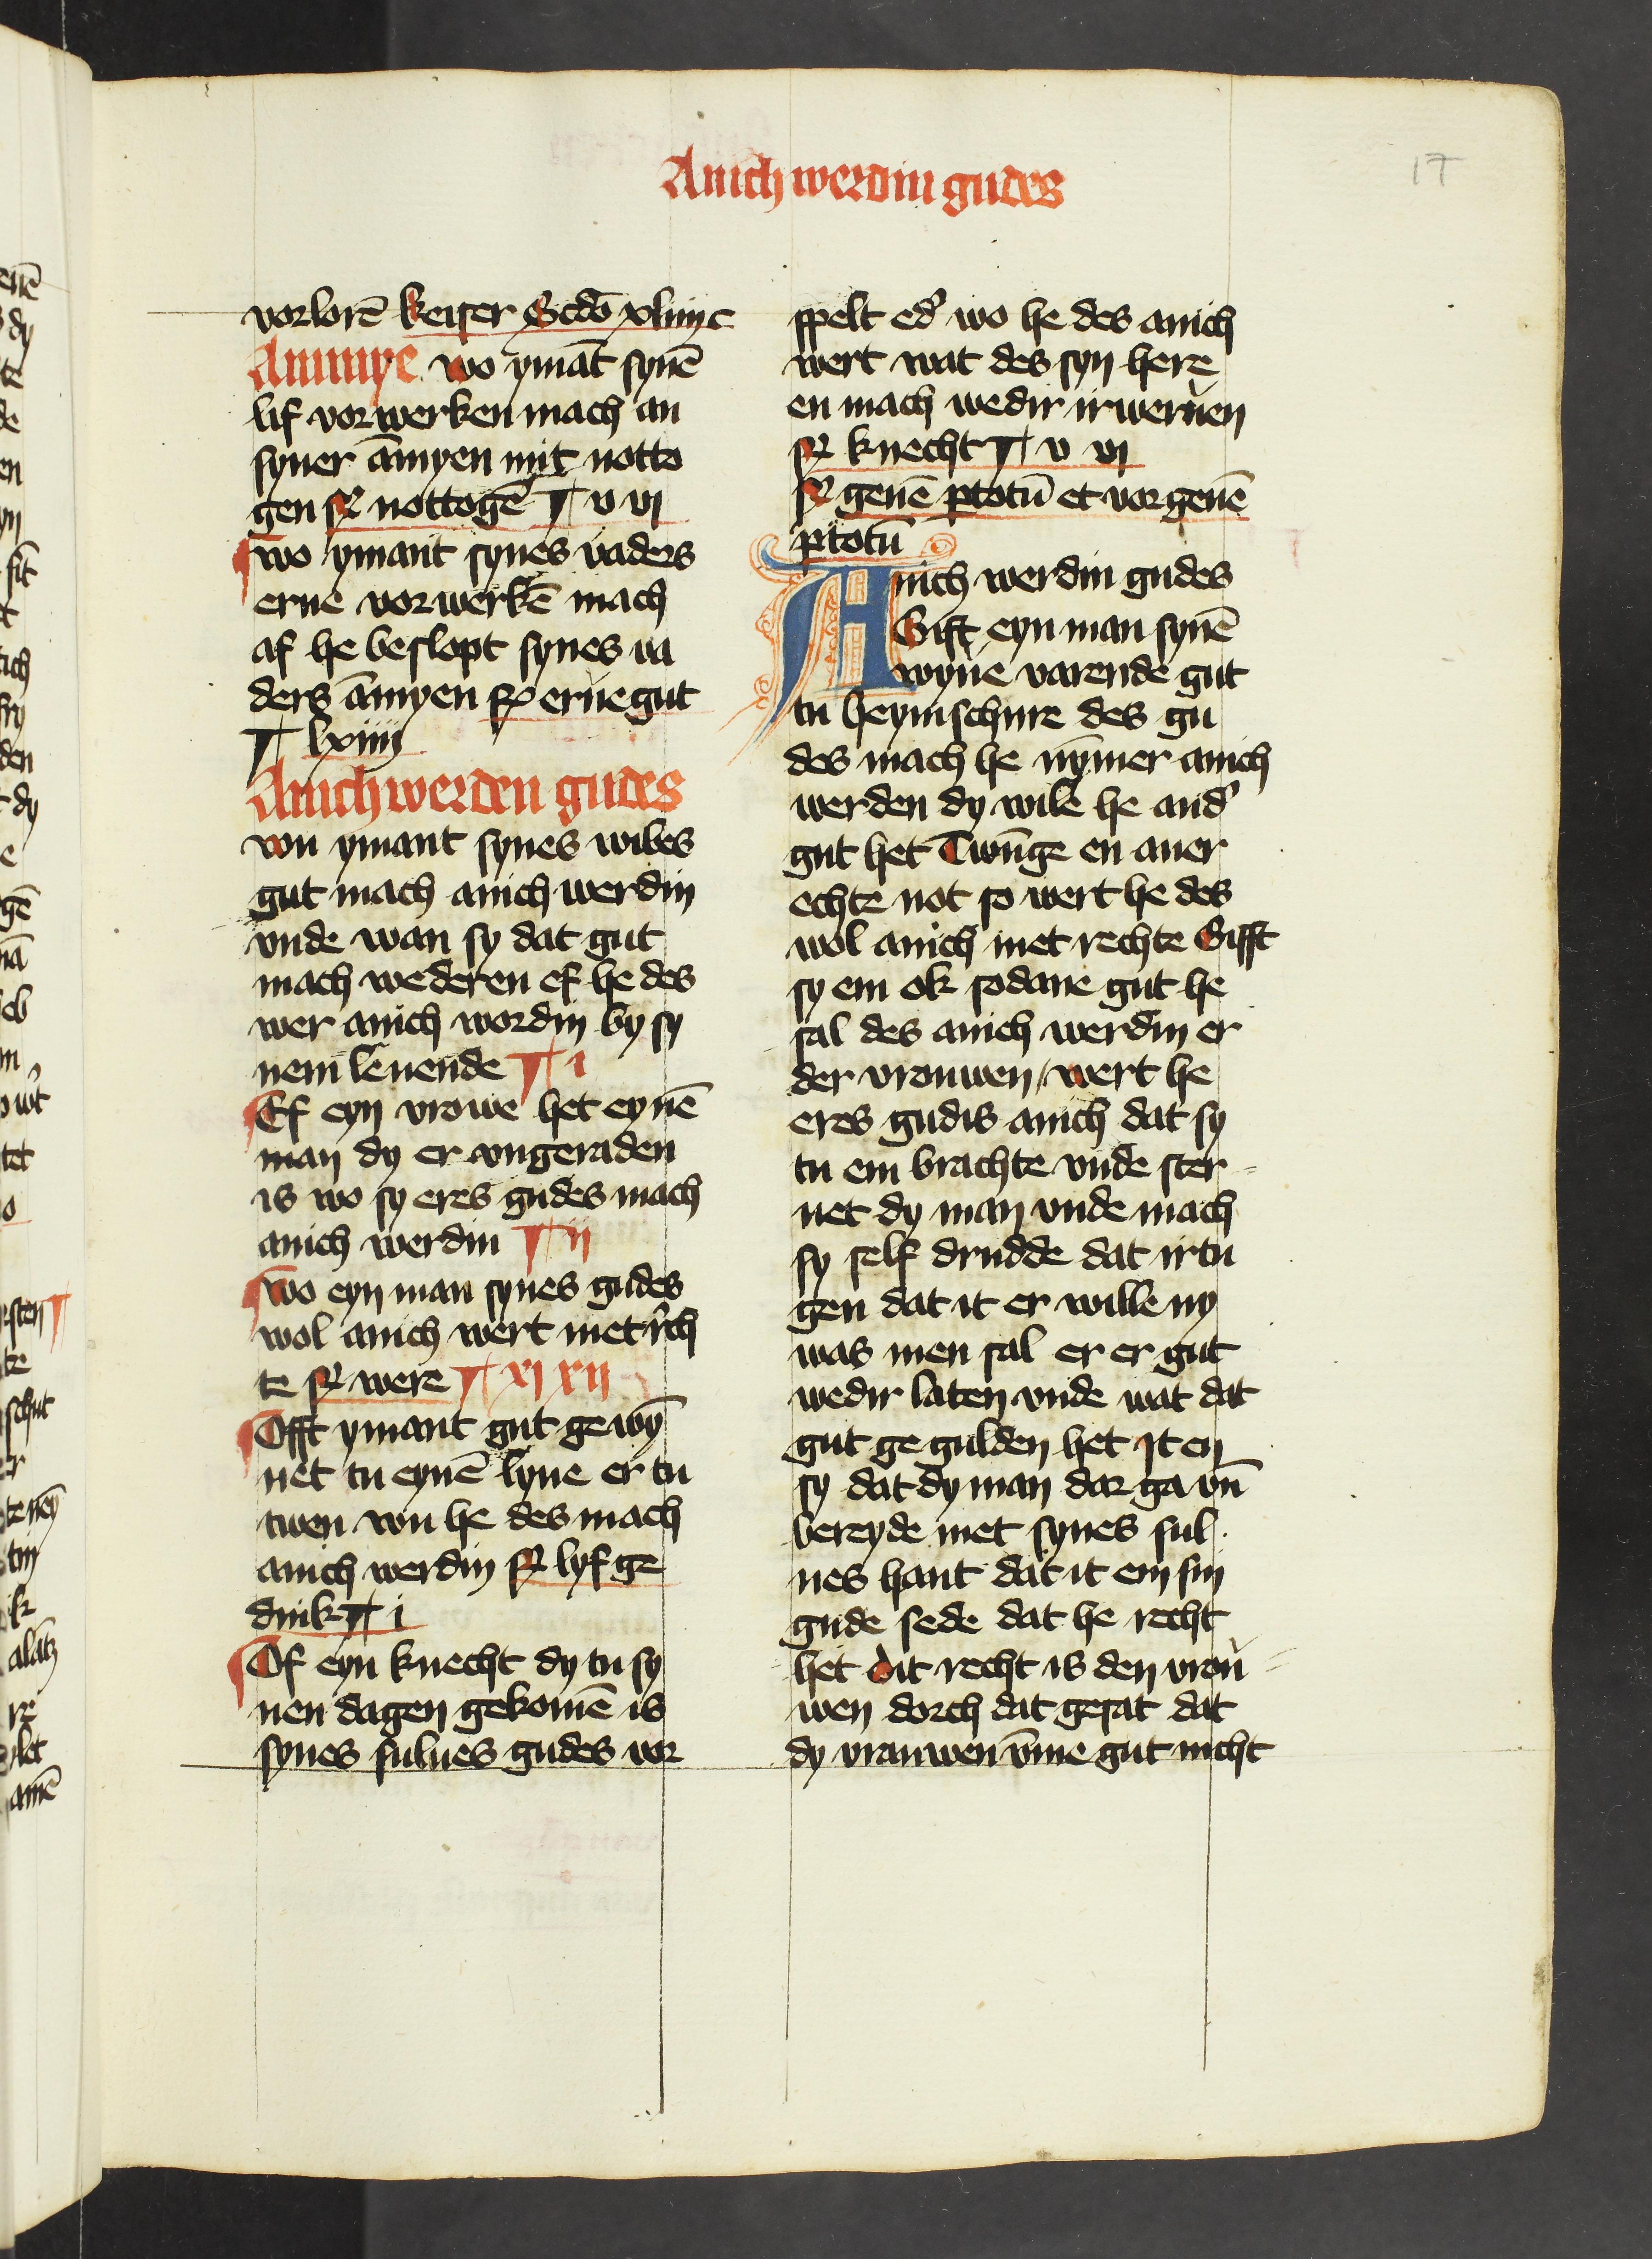 Anich werdin gudes
17
vorlorē keiser Scdō xliiij c
Ammye wo ymāt synē
lif vorwerken mach an
syner āmyen mit notto
gen sʳ nottogē ¶ v vi
wo ymant synes vaders
erue vorwerkē mach
af he beslopt synes va
ders āmyen sʳ erue gut
¶ lxiiii
Anich werden gudes
wu ymant synes wibes
gut mach anich werdin
vnde wan sy dat gut
mach wederen ef he des
wer anich wordin by sy
nem leuende ¶ i
Ef eyn vrowe het eynē
man dy er vngeraden
is wo sy eres gudes mach
anich werdin ¶ ii
wo eyn man synes gudes
wol anich wert met rch
te sʳ were ¶ xi xii
Offt ymant gut ge wȳ
net tu eynē lyue er tu
twen wu he des mach
anich werdin sʳ lyf ge
dink ¶ i
Of eyn knecht dy tu sy
nen dagen gekomē is
synes sulues gudes vor
spelt ed' wo he des anich
wert wat des syn here
en mach wedir irweruen
sʳ knecht ¶ v vi
sʳ geuē ptotū et vorgeuē
ptotū
Anich werdin gudes
Gift eyn man synē
wyue varende gut
tu heymschure des gu
des mach he nȳmer anich
werden dy wile he and'
gut het Twūge en auer
echte not so wert he des
wol anich met rechte Gifft
sy em ok sodane gut he
sal des anich werdin er
der vrouwen / wert he
eres gudis anich dat sy
tu em brachte vnde ster
uet dy man vnde mach
sy self drudde dat irtu
gen dat it er wille ny
was men sal er er gut
wedir laten vnde wat dat
gut ge gulden het it en
sy dat dy man dar ga vn̄
bereyde met synes sul
ues hant dat it em sin
gude sede dat he recht
het dit recht is den vrou
wen dorch dat gesat dat
dy vrauwen vmme gut nicht